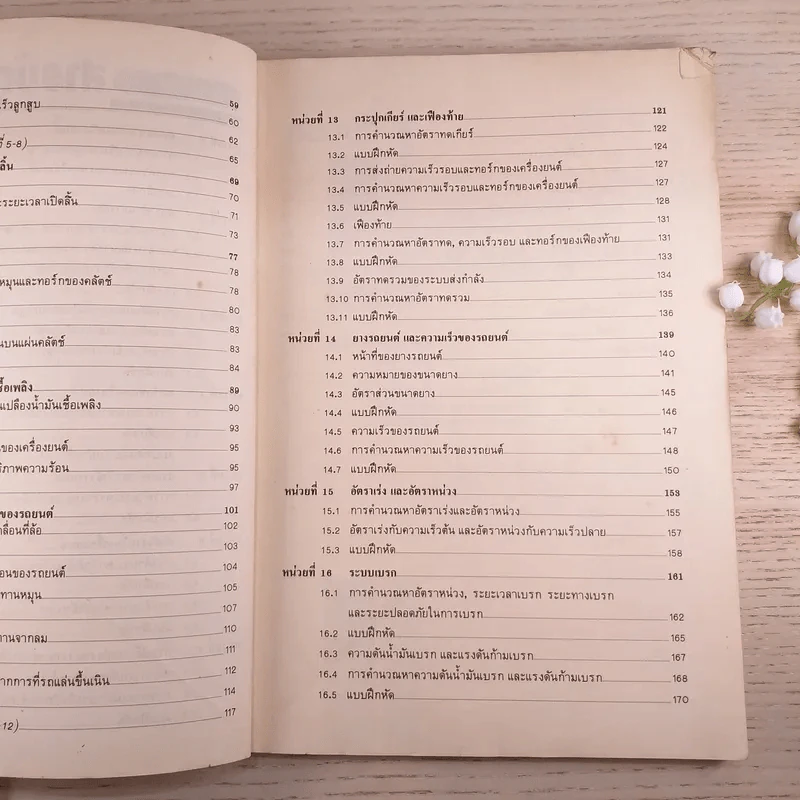 เร็วลูกสูบ 59
60
ที่ 5-8) 62
65
ลิ้น 69
ะระยะเวลาเปิดลิ้น 70
71
73
77
หมุนและทอร์กของคลัตช์ 78
78
80
83
นบนแผ่นคลัตช์ 83
84
ชื้อเพลิง 89
แปลืองน้ำมันเชื้อเพลิง 90
93
ของเครื่องยนต์ 95
ธิภาพความร้อน 95
97
ของรถยนต์ 101
คลื่อนที่ล้อ 102
103
อนของรถยนต์ 104
ทานหมุน 105
107
110
ทานจากลม 111
112
ากการที่รถแล่นขึ้นเนิน 114
-12) 117
หน่วยที่ 13 กระปุกเกียร์ และเฟืองท้าย 121
13.1 การคำนวณหาอัตราทดเกียร์ 122
13.2 แบบฝึกหัด 124
13.3 การส่งถ่ายความเร็วรอบและทอร์กของเครื่องยนต์ 127
13.4 การคำนวณหาความเร็วรอบและทอร์กของเครื่องยนต์ 127
13.5 แบบฝึกหัด 128
13.6 เฟืองท้าย 131
13.7 การคำนวณหาอัตราทด, ความเร็วรอบ และทอร์กของเฟืองท้าย 131
13.8 แบบฝึกหัด 133
13.9 อัตราทดรวมของระบบส่งกำลัง 134
13.10 การคำนวณหาอัตราทดรวม 135
13.11 แบบฝึกหัด 136
หน่วยที่ 14 ยางรถยนต์ และความเร็วของรถยนต์ 139
14.1 หน้าที่ของยางรถยนต์ 140
14.2 ความหมายของขนาดยาง 141
14.3 อัตราส่วนขนาดยาง 145
14.4 แบบฝึกหัด 146
14.5 ความเร็วของรถยนต์ 147
14.6 การคำนวณหาความเร็วของรถยนต์ 148
14.7 แบบฝึกหัด 150
หน่วยที่ 15 อัตราเร่ง และอัตราหน่วง 153
15.1 การคำนวณหาอัตราเร่งและอัตราหน่วง 155
15.2 อัตราเร่งกับความเร็วต้น และอัตราหน่วงกับความเร็วปลาย 157
15.3 แบบฝึกหัด 158
หน่วยที่ 16 ระบบเบรก 161
16.1 การคำนวณหาอัตราหน่วง, ระยะเวลาเบรก ระยะทางเบรก
และระยะปลอดภัยในการเบรก 162
16.2 แบบฝึกหัด 165
16.3 ความดันน้ำมันเบรก และแรงดันก้ามเบรก 167
16.4 การคำนวณหาความดันน้ำมันเบรก และแรงดันก้ามเบรก 168
16.5 แบบฝึกหัด 170